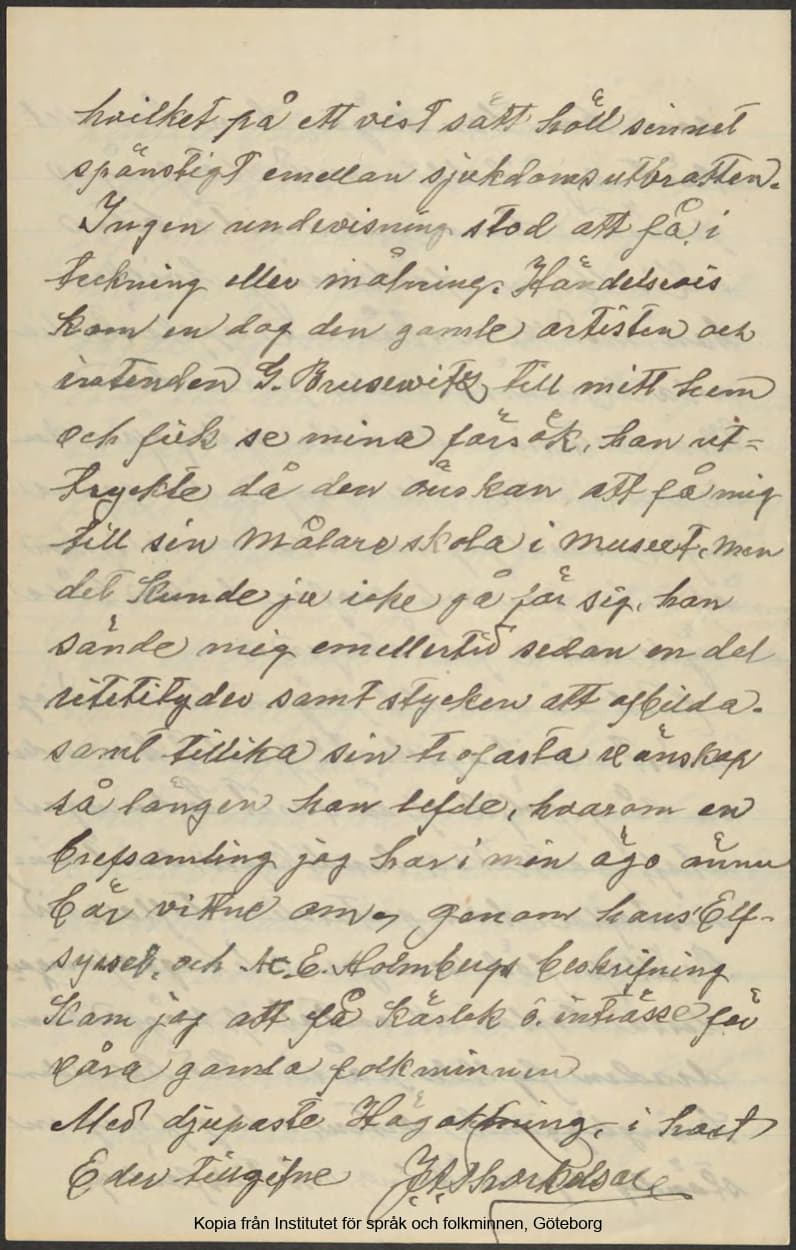 hvilket på ett vist sätt höll sinnet
spänstigt emellan sjukdomsutbrotten.
Ingen undevisning stod att få i
teckning eller målning. Händelsevis
kom en dag den gamle artisten och
intenden G. Brusewitz, till mitt hem
och fick se mina försök, han ut-
tryckte då den önskan att få mig
till sin målareskola i museet, men
det kunde ju icke gå för sig, han
sände mig emellertid sedan en del
samt stycken att afbilda.
samt tillika sin trofasta vänskap
så längen han lefde, hvarom en
brefsamling jag har i min ägo ännu
bär vittne om, genom hans Elf-
syssel, och A. E. Holmbergs beskrifning
kom jag att få kärlek o. inträsse för
våra gamla folkminnen
Med djupaste Högaktning, i hast
Eder tillgifne J. A. Thorkelson
Kopia från Institutet för språk och folkminnen, Göteborg